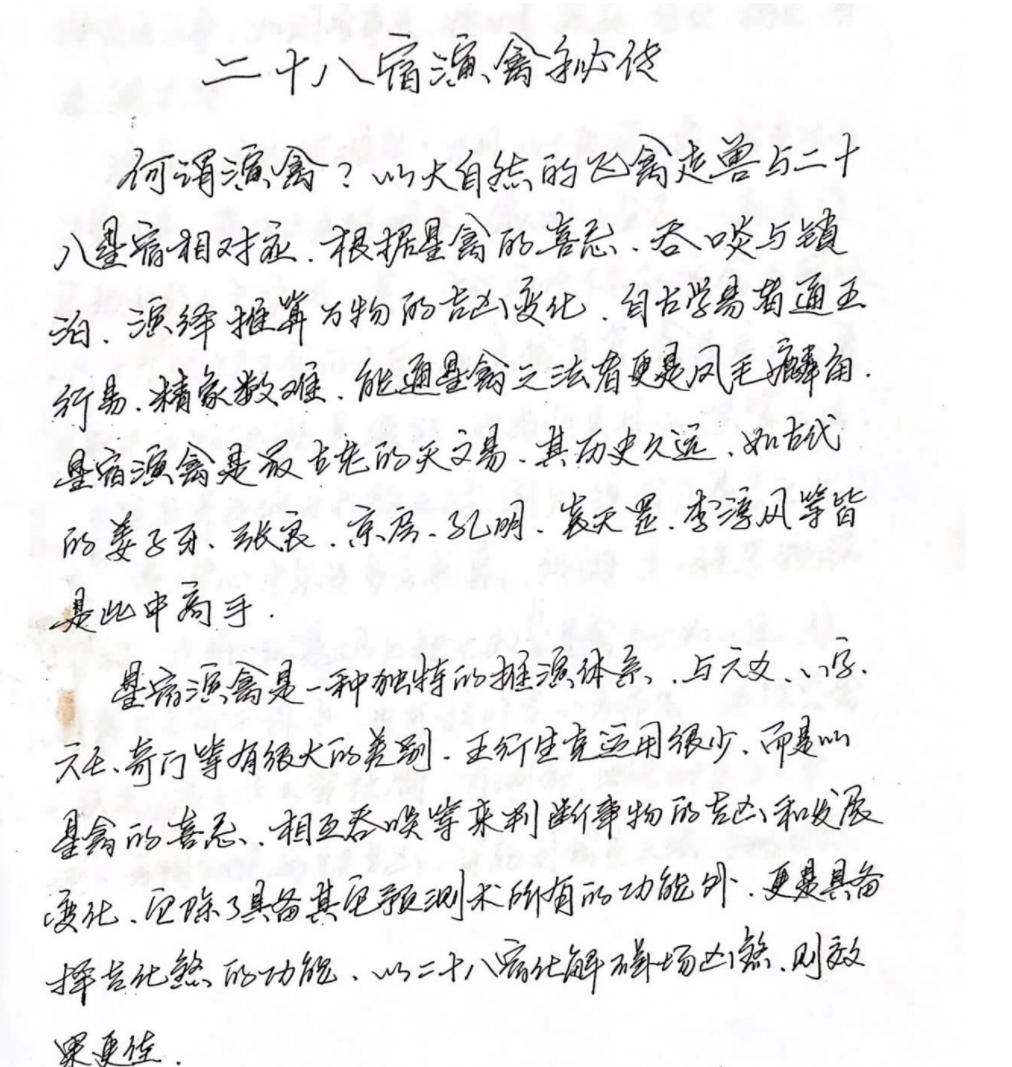 二十八宿演禽秘传
何谓演禽？以大自然的飞禽走兽与二十
八星宿相对应、根据星禽的喜忌、吞啖与锁
泊、演绎推算万物的吉凶变化、自古学易者通五
行易、精象数难、能通星禽之法者更是凤毛麟角.
星宿演禽是最古老的天文易、其历史久远、如古代
的姜子牙、张良、京房、孔明、袁天罡、李淳风等皆
是此中高手.
星宿演禽是一种独特的推演体系、与六爻、八字、
六壬、奇门等有很大的差别、五行生克运用很少、而是以
星禽的喜忌、相互吞啖等来判断事物的吉凶和发展
变化、它除了具备其它预测术所有的功能外、更是具备
择吉化煞的功能、以二十八宿化解磁场凶煞、则效
果更佳.